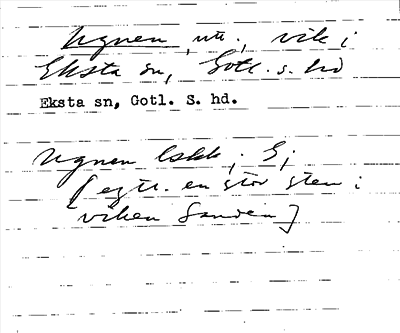 Ugnen, nu., vik i
Eksta sn, Gotl. s. hd
Eksta sn, Gotl. S. hd.
Ugnen lskk, S;
[egtl. en stor sten i
viken Sanden]